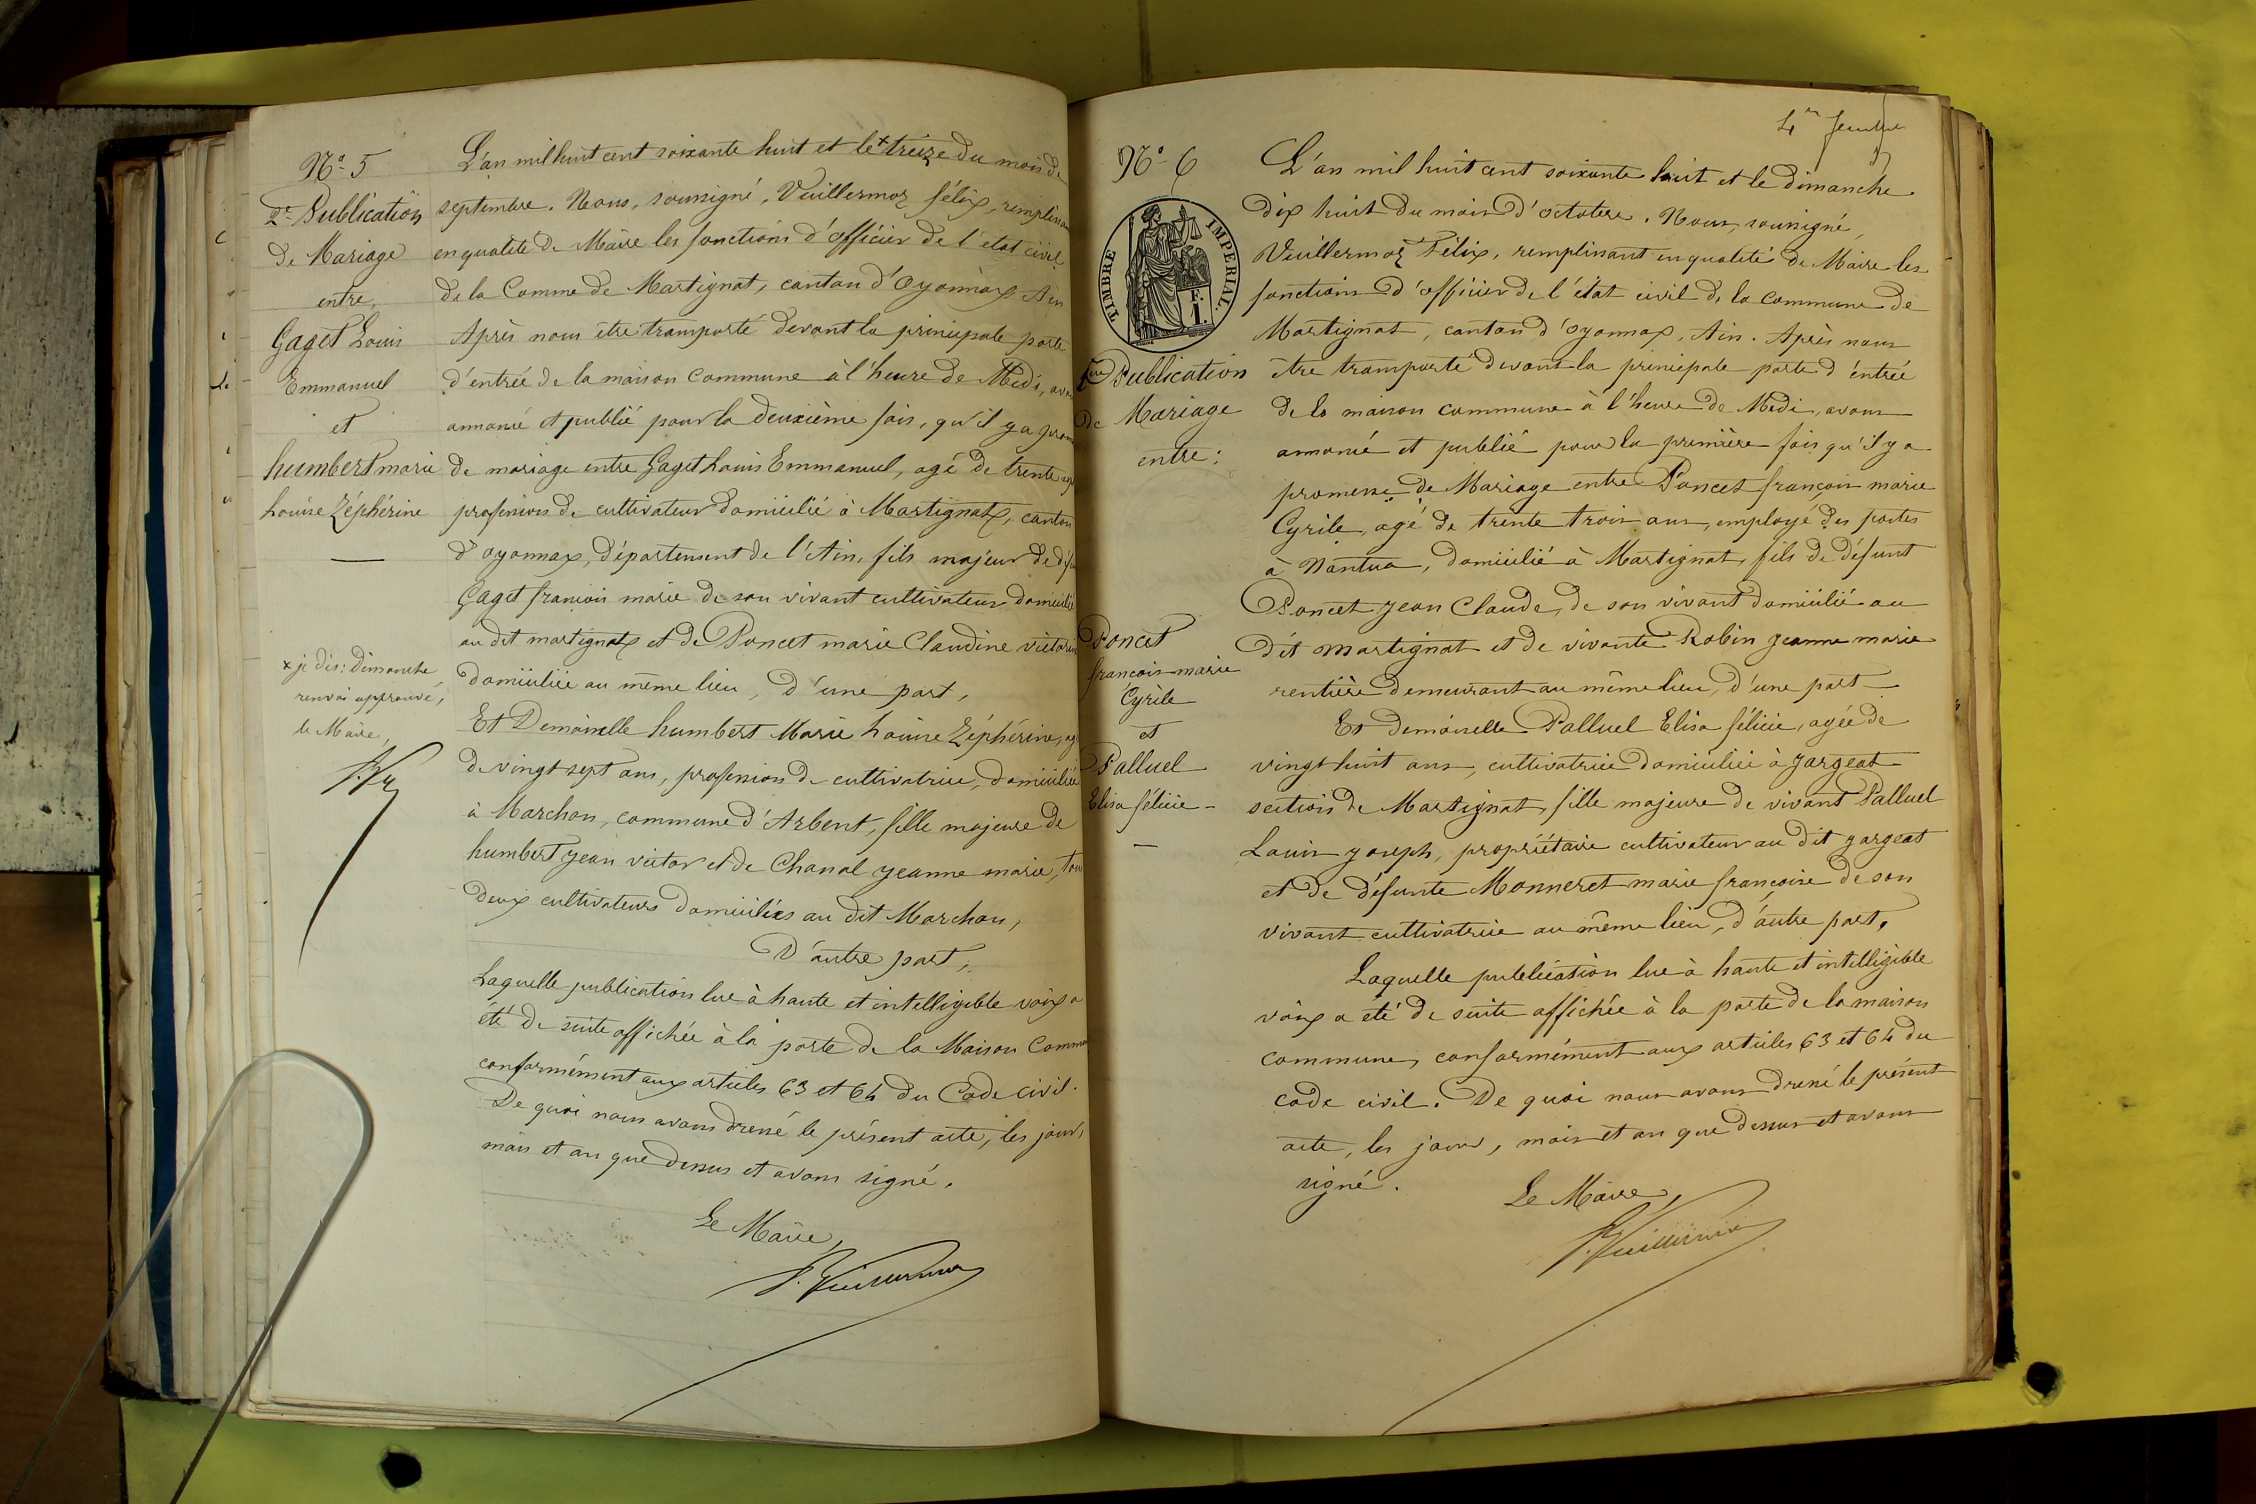 Nº 5
2e Publication
de Mariage
entre
Gaget Louis
Emmanuel
et
humbert marie
Louise Zéphérine
x je dis: Dimanche,
renvoi approuvé,
le Maire,
L'an mil huit cent soixante huit et le x treize du mois de
septembre. Nous, soussigné, Vuillermoz félix, remplissant
en qualité de Maire les fonctions d'officier de l'état civil
de la Comme de Martignat, canton d'Oyonnax, Ain
Après nous être transporté devant la principale porte
d'entrée de la maison commune à l'heure de Midi, avons
annoncé et publié pour la deuxième fois, qu'il y a
de mariage entre Gaget Louis Emmanuel, agé de trente
profession de cultivateur domicilié à Martignat, canton
d'oyonnax, département de l'Ain, fils majeur de
Gaget françois marie de son vivant cultivateur domicilié
au dit martignat et de Poncet marie Claudine
domiciliée au même lieu, d'une part,
Et Demoiselle humbert Marie Louise Zéphérine,
de vingt sept ans, profession de cultivatrice, domiciliée
à Marchon, commune d'Arbent, fille majeure de
humbert jean victor et de Chanal jeanne marie, tous
deux cultivateurs domiciliés au dit Marchon,
D'autre part,
Laquelle publication lue à haute et intelligible voix a
été de suite affichée à la porte de la Maison
conformément aux articles 63 et 64 du Code civil.
De quoi nous avons dressé le présent acte, les jour,
mois et an que dessus et avons signé.
Le Maire,
F. Vuillermoz
Nº 6
TIMBRE IMPERIAL
F.
1.
1ère Publication
de Mariage
entre:
Poncet
françois marie
Cyrile
et
Palluel
Elisa félicie
L'an mil huit cent soixante huit et le dimanche
dix huit du mois d'octobre. Nous, soussigné,
Vuillermoz Félix, remplissant en qualité de Maire les
fonctions d'officier de l'état civil de la commune de
Martignat, canton d'oyonnax, Ain. Après nous
être transporté devant la principale porte d'entrée
de la maison commune à l'heure de Midi, avons
annoncé et publié pour la première fois qu'il y a
promesse de Mariage entre Poncet françois marie
Cyrile, agé de trente trois ans, employé des postes
à Nantua, domicilié à Martignat, fils de défunt
Poncet jean Claude, de son vivant domicilié au
dit martignat et de vivante Robin jeanne marie
rentière demeurant au même lieu, d'une part
Et demoiselle Palluel Elisa félicie, agée de
vingt huit ans, cultivatrice domiciliée à jargeat
section de Martignat, fille majeure de vivant Palluel
Louis joseph, propriétaire cultivateur au dit jargeat
et de défunte Monneret marie françoise de son
vivant cultivatrice au même lieu, d'autre part,
Laquelle publication lue à haute et intelligible
voix a été de suite affichée à la porte de la maison
commune, conformément aux articles 63 et 64 du
code civil. De quoi nous avons dressé le présent
acte, les jour, mois et an que dessus et avons
signé.
Le Maire,
F. Vuillermoz